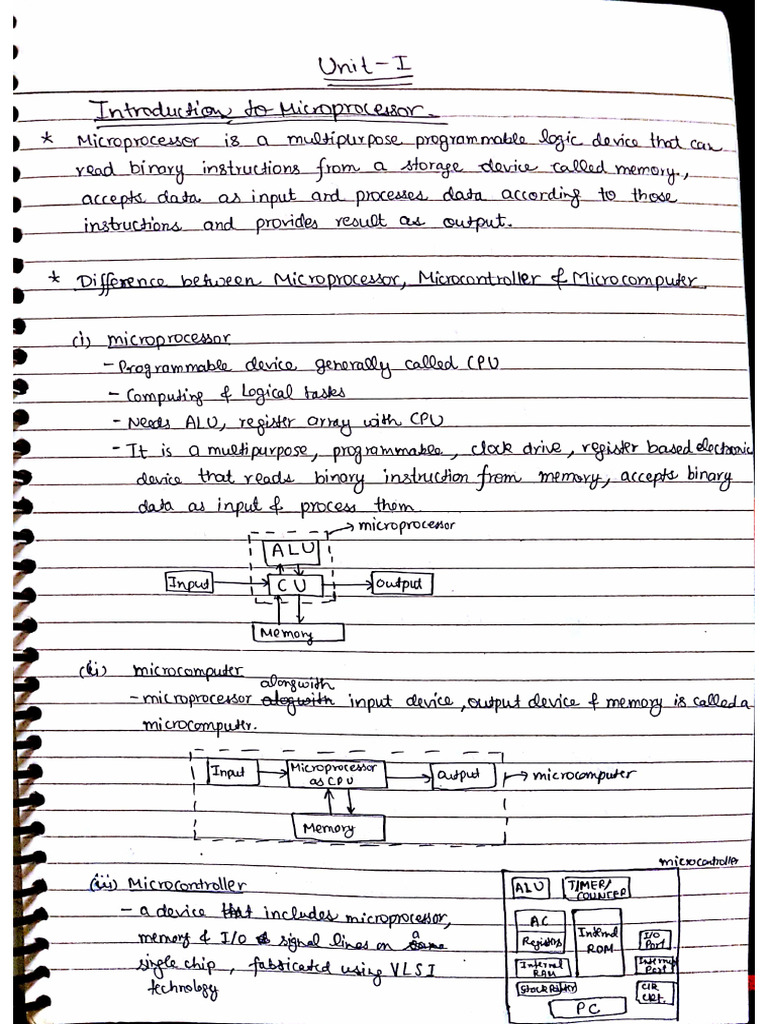 Unit-I
Introduction to Microprocessor.
* Microprocessor is a multipurpose programmable logic device that can
read binary instructions from a storage device called memory,
accepts data as input and processes data according to those
instructions and provides result as output.
* Difference between Microprocessor, Microcontroller & Microcomputer.
(i) microprocessor
- Programmable device generally called CPU
- Computing & Logical tasks
- Needs ALU, register array with CPU
- It is a multipurpose, programmable, clock drive, register based electronic
device that reads binary instruction from memory, accepts binary
data as input & process them.
→ microprocessor
ALU
Input
CU
Output
Memory
(ii) microcomputer
alongwith
- microprocessor alogwith input device, output device & memory is called a
microcomputer.
Input
Microprocessor
as CPU
Output
→ microcomputer
Memory
(iii) Microcontroller
- a device that includes microprocessor,
memory & I/O signal lines on a same
single chip, fabricated using VLSI
technology
microcontroller
ALU
TIMER/
COUNTER
AC
Internal
ROM
Register
I/O
Port
Internal
RAM
Interrupt
Port
Stack Pointer
CLK
CKT.
PC